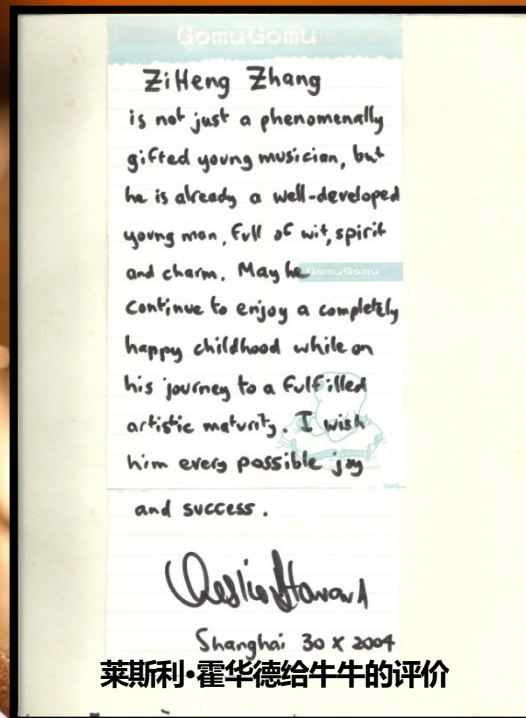 GomuGomu
ZiHeng Zhang
is not just a phenomenally
gifted young musician, but
he is already a well-developed
young man, full of wit, spirit
and charm. May he GomuGomu
continue to enjoy a completely
happy childhood while on
his journey to a fulfilled
artistic maturity. I wish
him every possible joy
and success.
Leslie Howard
Shanghai 30 X 2004
莱斯利•霍华德给牛牛的评价